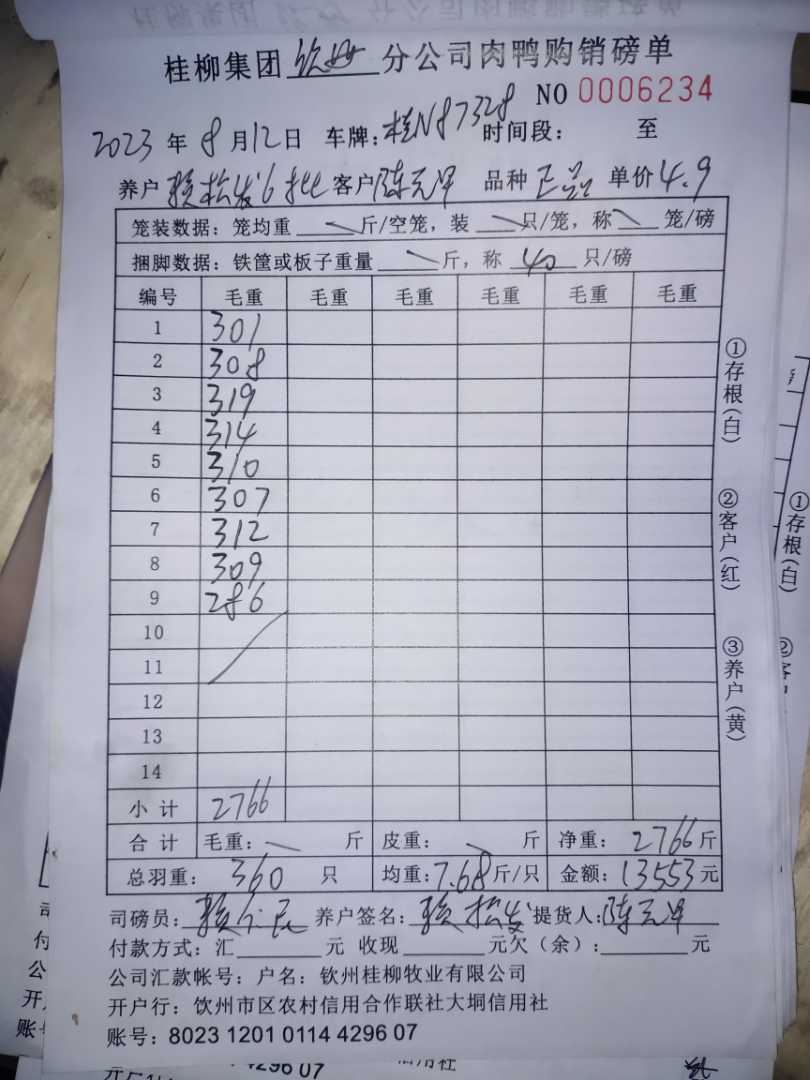 桂柳集团 钦州 分公司肉鸭购销磅单
NO 0006234
2023 年 8 月 12 日 车牌: 桂N87328 时间段: 至
养户 赖松发6批 客户 陈元军 品种 正品 单价 4.9
笼装数据: 笼均重 斤/空笼, 装 只/笼, 称 笼/磅
捆脚数据: 铁筐或板子重量 斤, 称 40 只/磅
编号 毛重 毛重 毛重 毛重 毛重 毛重
1 301
2 308
3 319
4 314
5 310
6 307
7 312
8 309
9 286
10
11
12
13
14
小 计 2766
合 计 毛重: 斤 皮重: 斤 净重: 2766 斤
总羽重: 360 只 均重: 7.68 斤/只 金额: 13553 元
司磅员: 养户签名: 赖松发 提货人: 陈元军
付款方式: 汇 元 收现 元欠(余): 元
公司汇款帐号: 户名: 钦州桂柳牧业有限公司
开户行: 饮州市区农村信用合作联社大垌信用社
账号: 8023 1201 0114 4296 07
①存根(白)
②客户(红)
③养户(黄)
①存根(白)
②
4296 07
信用社